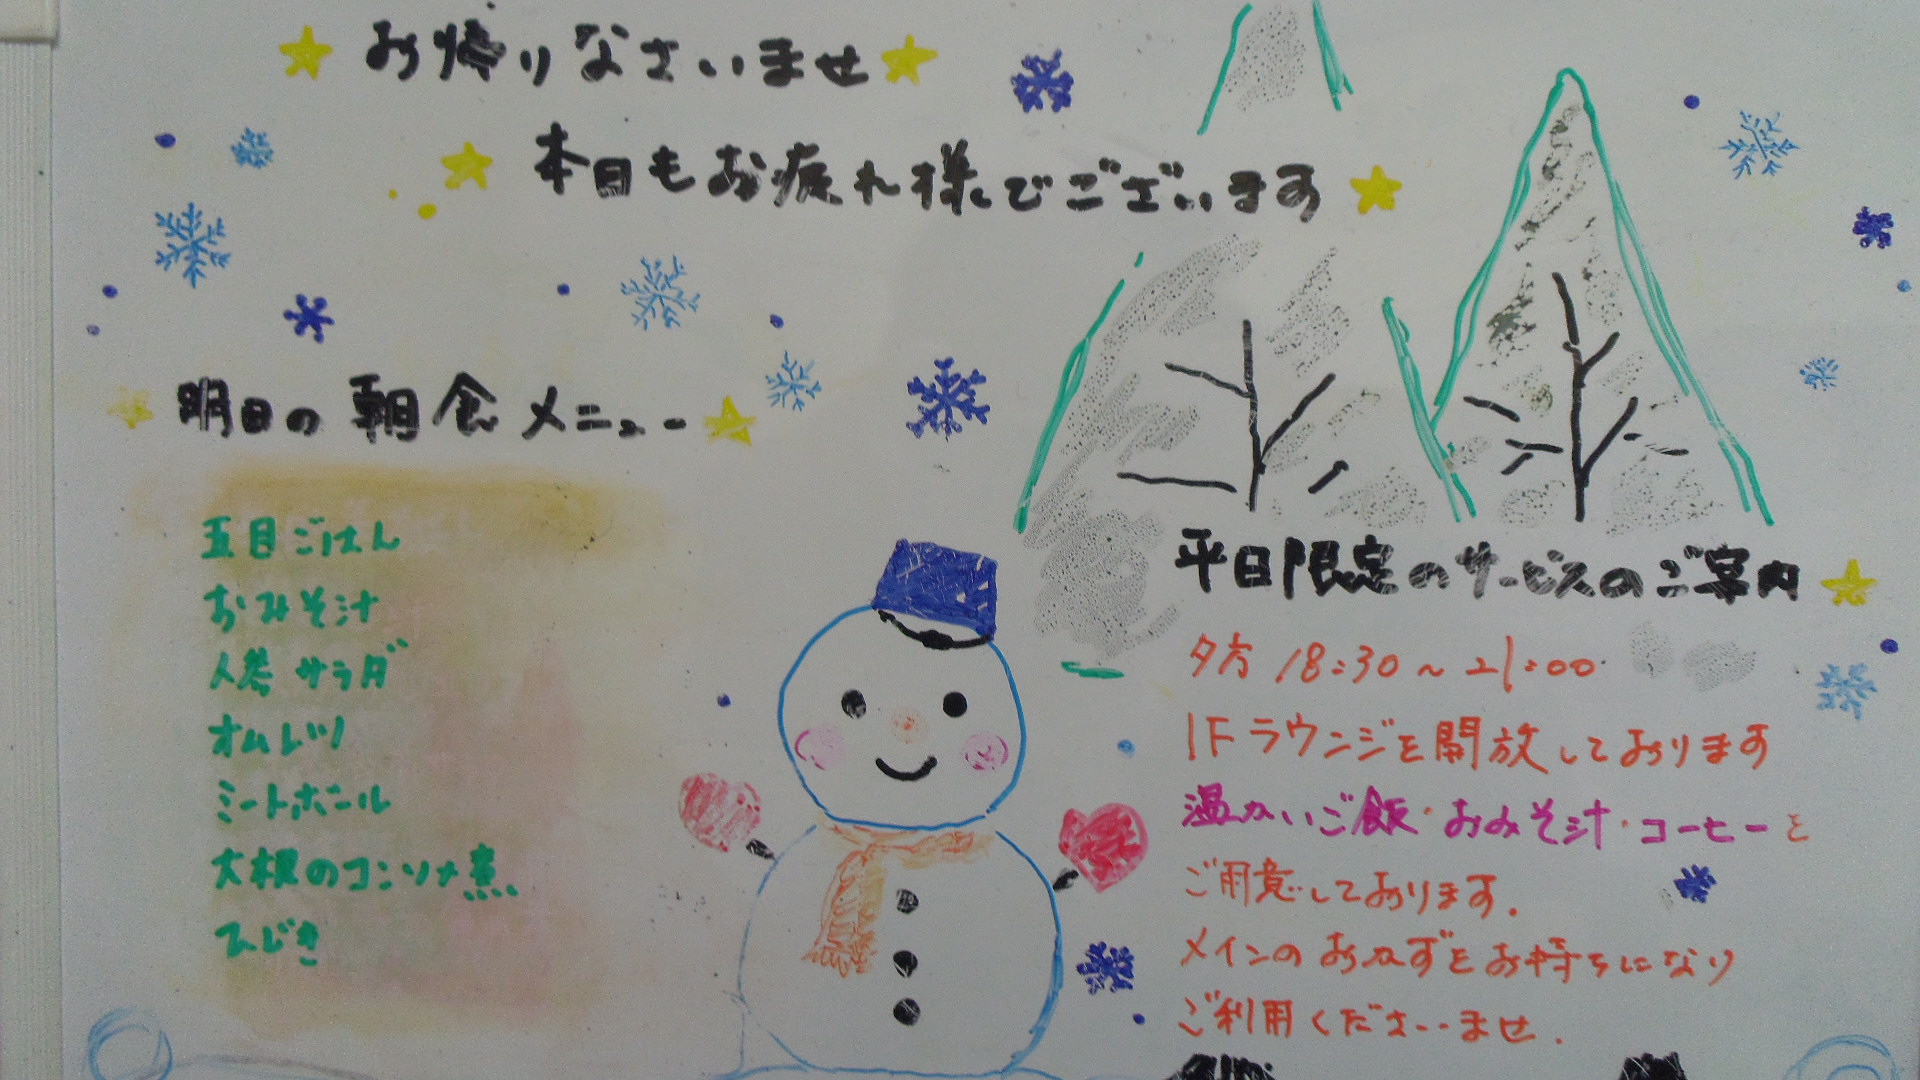 お帰りなさいませ
本日もお疲れ様でございます
明日の朝食メニュー
五目ごはん
おみそ汁
人参サラダ
オムレツ
ミートボール
大根のコンソメ煮
ひじき
平日限定のサービスのご案内
夕方 18:30〜21:00
1Fラウンジを開放しております
温かいご飯・おみそ汁・コーヒーを
ご用意しております.
メインのおかずをお持ちになり
ご利用くださいませ.